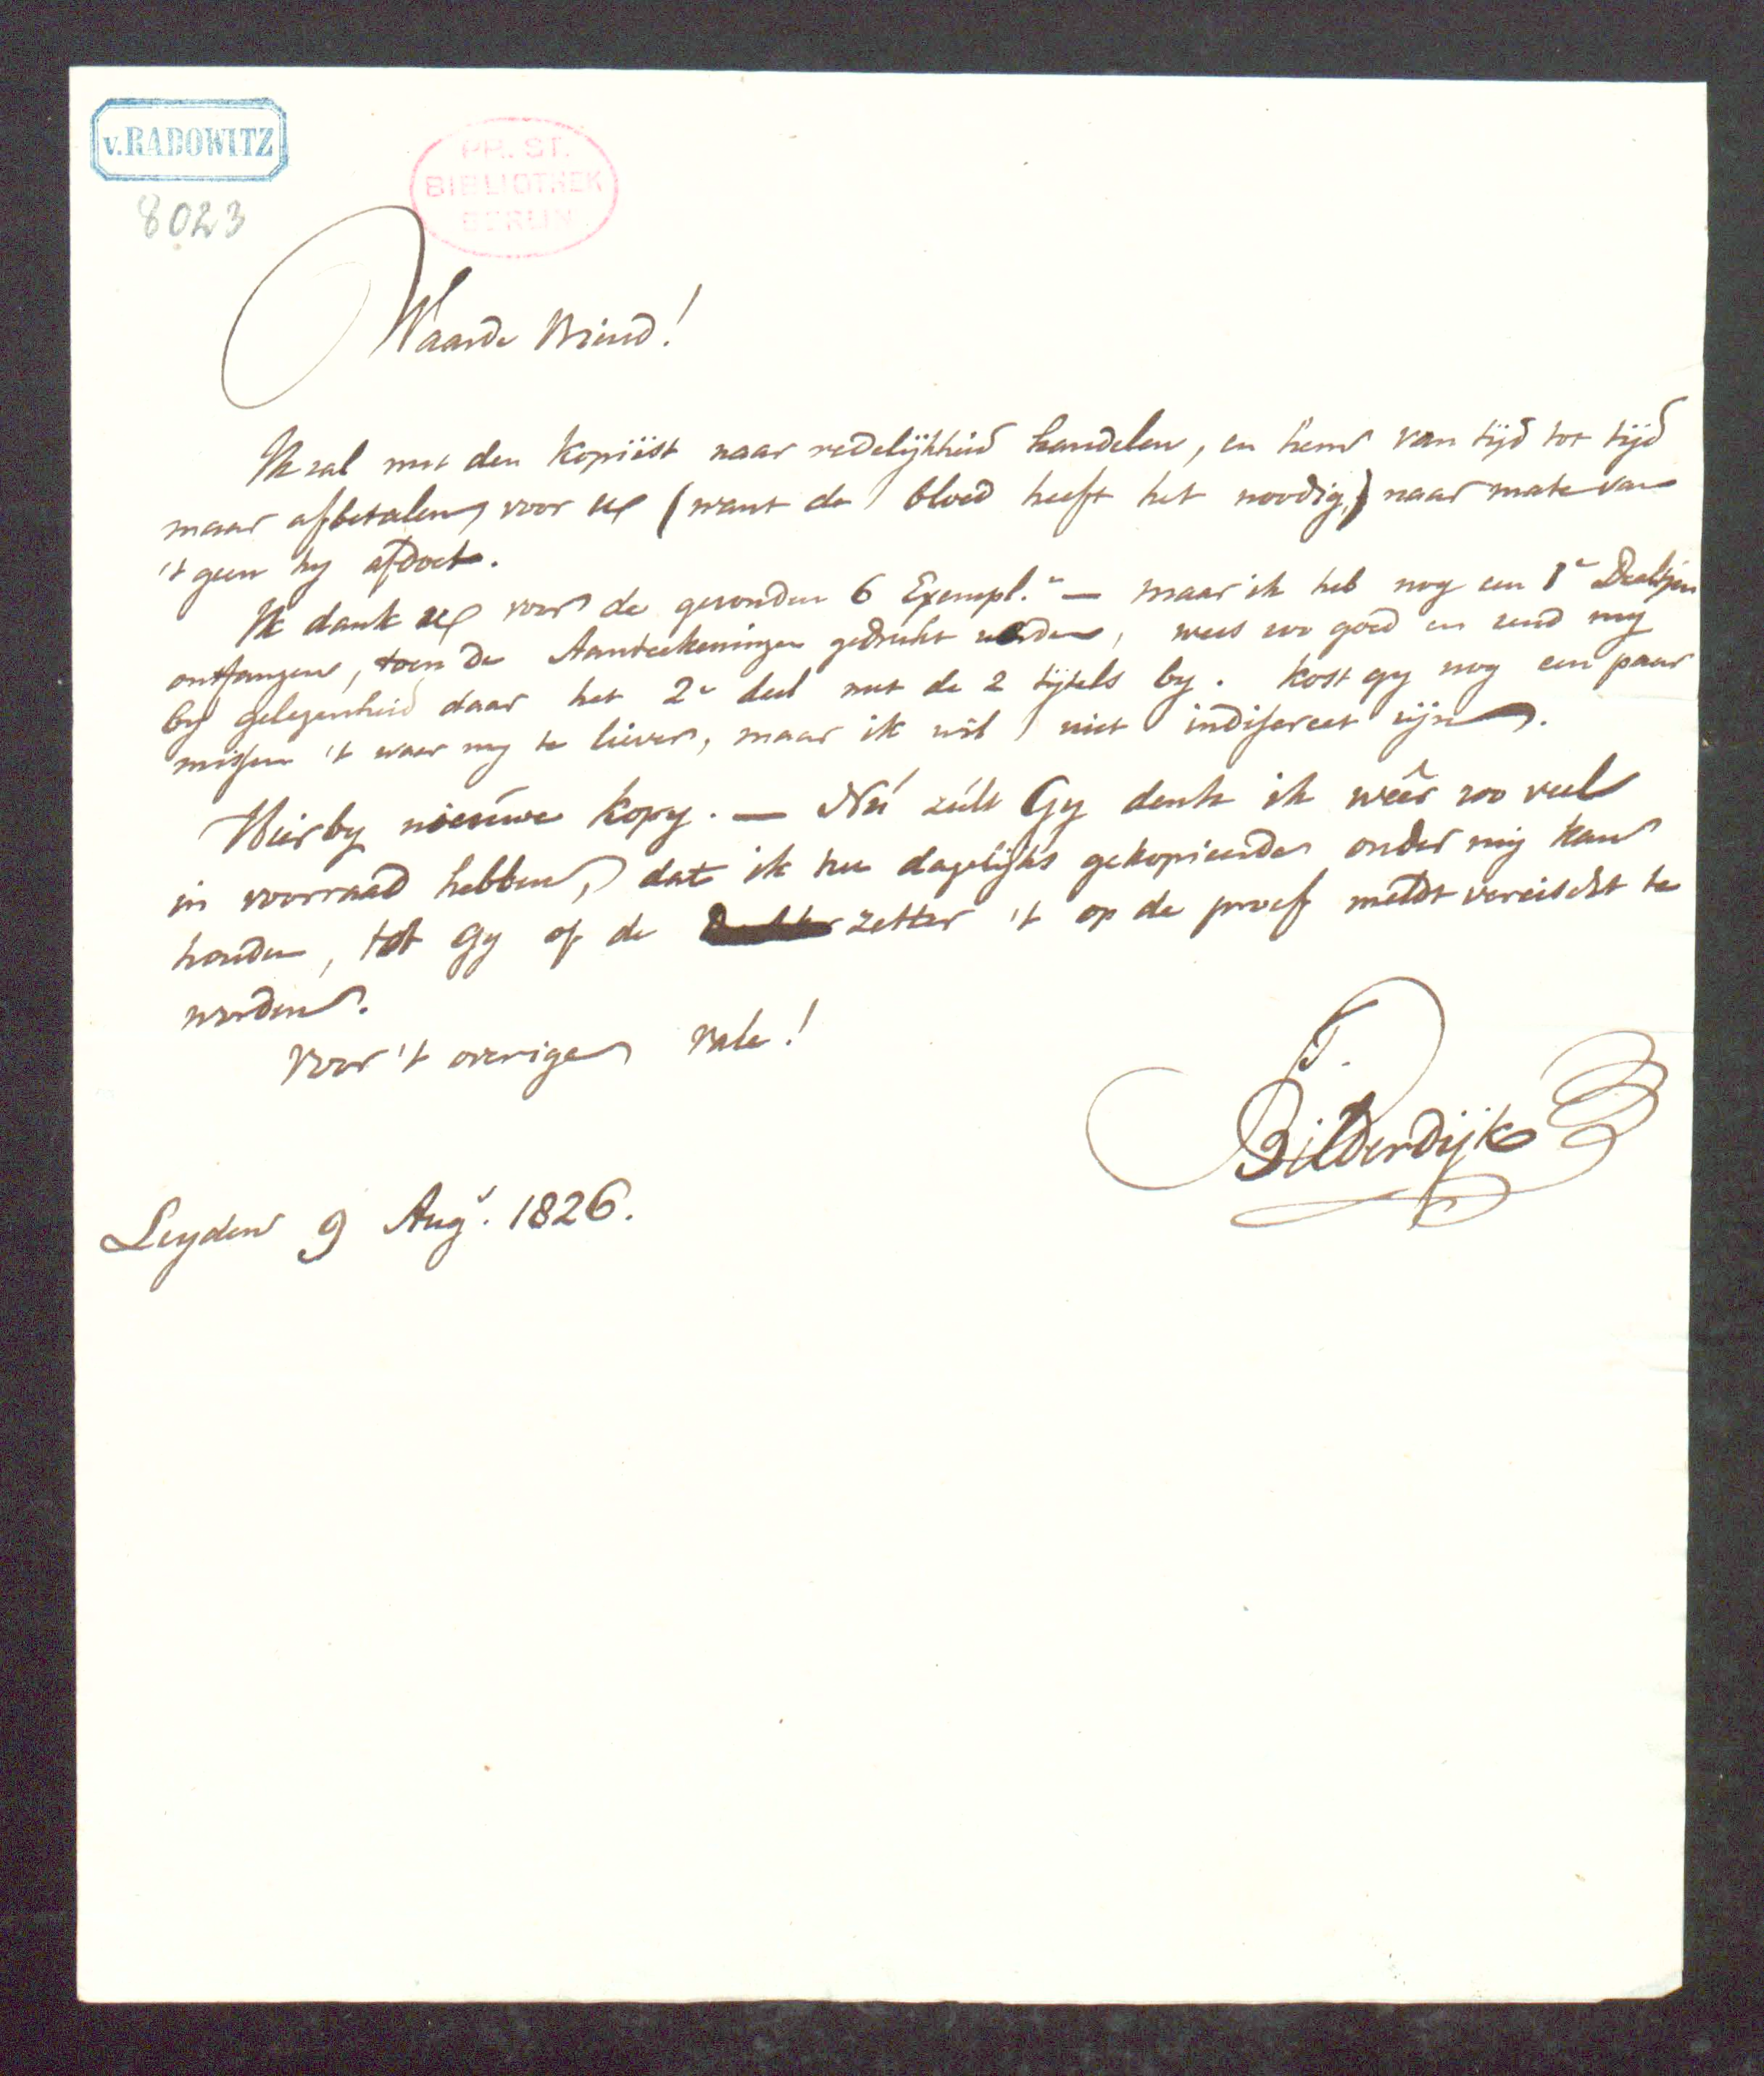 v. RADOWITZ
PR. ST.
BIBLIOTHEK
BERLIN
8023
Waarde Vriend!
Ik zal met den kopiïst naar redelijkheid handelen, en hem van tijd tot tijd
maar afbetalen, voor (want de bloed heeft het noodig,) naar mate van
't geen hy afdoet.
Ik dank voor de gezonden 6 Exempl.n — maar ik heb nog een 1e Deeltjen
ontfangen, toen de Aanteekeningen gedrukt werden, wees zoo goed en zend my
by gelegenheid daar het 2e deel met de 2 tijtels by. kost gy nog een paar
missen 't waar my te liever, maar ik wil niet indiscreet zijn.
Hierby nieuwe kopy. — Nú zúlt Gy denk ik weêr zoo veel
in voorraad hebben, dat ik het dagelijks gekopieerde onder mij kan
houden, tot Gy of de zetter 't op de proef meldt vereischt te
worden.
Voor 't overige vale!
T.
Bilderdijk
Leyden 9 Aug. 1826.